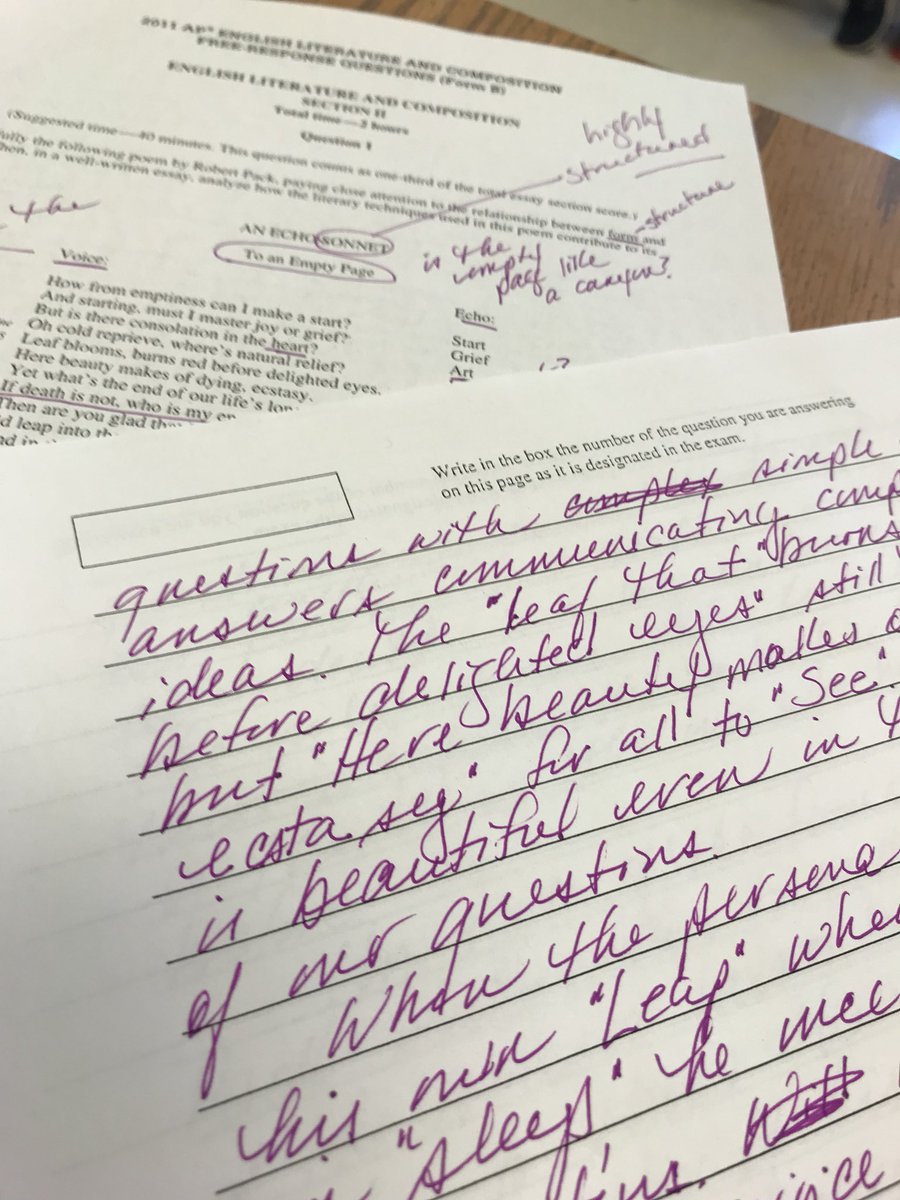 2011 AP® ENGLISH LITERATURE AND COMPOSITION
FREE-RESPONSE QUESTIONS (Form B)
ENGLISH LITERATURE AND COMPOSITION
SECTION II
Total time—2 hours
Question 1
(Suggested time—40 minutes. This question counts as one-third of the total essay section score.)
fully the following poem by Robert Pack, paying close attention to the relationship between form and
then, in a well-written essay, analyze how the literary techniques used in this poem contribute to its
highly
structured
structure
the
AN ECHO SONNET
To an Empty Page
is the
empty
page like
a canyon?
Voice:
Echo:
How from emptiness can I make a start?
Start
And starting, must I master joy or grief?
Grief
But is there consolation in the heart?
Art
Oh cold reprieve, where's natural relief?
Leaf blooms, burns red before delighted eyes.
Here beauty makes of dying, ecstasy.
Yet what's the end of our life's
If death is not, who is my
Then are you glad
leap into
Write in the box the number of the question you are answering
on this page as it is designated in the exam.
questions with complex simple
answers communicating
ideas. The "leaf that "burns
before delighted eyes" still
but "Here beauty makes
ecstasy" for all to "See"
is beautiful even in
of our questions.
When the persona
his own "Leap"
"sleep" he